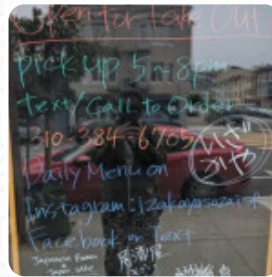 Open for Take Out
pick up 5~8pm
text/Call to Order
310-384-6705
いざ
Daily Menu on
Instagram:izakayasozaisf
Facebook or Text
Japanese Fusion
Tapas sake
居酒屋